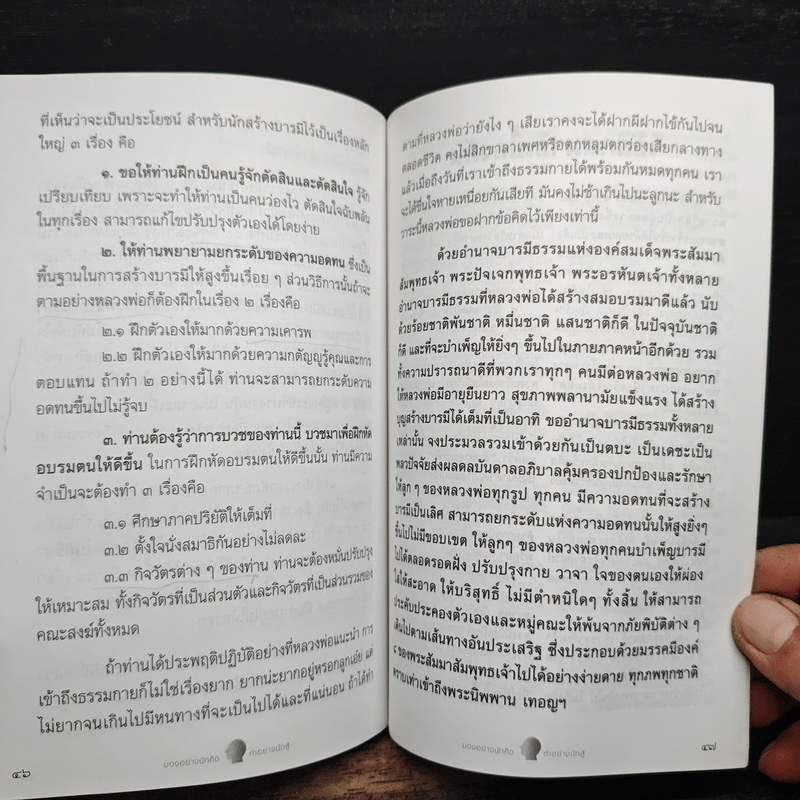 ที่เห็นว่าจะเป็นประโยชน์ สำหรับนักสร้างบารมีไว้เป็นเรื่องหลัก
ใหญ่ ๓ เรื่อง คือ
๑. ขอให้ท่านฝึกเป็นคนรู้จักตัดสินและตัดสินใจ รู้จัก
เปรียบเทียบ เพราะจะทำให้ท่านเป็นคนว่องไว ตัดสินใจฉับพลัน
ในทุกเรื่อง สามารถแก้ไขปรับปรุงตัวเองได้โดยง่าย
๒. ให้ท่านพยายามยกระดับของความอดทน ซึ่งเป็น
พื้นฐานในการสร้างบารมีให้สูงขึ้นเรื่อย ๆ ส่วนวิธีการนั้นถ้าจะ
ตามอย่างหลวงพ่อก็ต้องฝึกในเรื่อง ๒ เรื่องคือ
๒.๑ ฝึกตัวเองให้มากด้วยความเคารพ
๒.๒ ฝึกตัวเองให้มากด้วยความกตัญญูรู้คุณและการ
ตอบแทน ถ้าทำ ๒ อย่างนี้ได้ ท่านจะสามารถยกระดับความ
อดทนขึ้นไปไม่รู้จบ
๓. ท่านต้องรู้ว่าการบวชของท่านนี้ บวชมาเพื่อฝึกหัด
อบรมตนให้ดีขึ้น ในการฝึกหัดอบรมตนให้ดีขึ้นนั้น ท่านมีความ
จำเป็นจะต้องทำ ๓ เรื่องคือ
๓.๑ ศึกษาภาคปริยัติให้เต็มที่
๓.๒ ตั้งใจนั่งสมาธิกันอย่างไม่ลดละ
๓.๓ กิจวัตรต่าง ๆ ของท่าน ท่านจะต้องหมั่นปรับปรุง
ให้เหมาะสม ทั้งกิจวัตรที่เป็นส่วนตัวและกิจวัตรที่เป็นส่วนรวมของ
คณะสงฆ์ทั้งหมด
ถ้าท่านได้ประพฤติปฏิบัติอย่างที่หลวงพ่อแนะนำ การ
เข้าถึงธรรมกายก็ไม่ใช่เรื่องยาก ยากน่ะยากอยู่หรอกลูกเอ๋ย แต่
ไม่ยากจนเกินไปมีหนทางที่จะเป็นไปได้และที่แน่นอน ถ้าได้ทำ
มองอย่างนักคิด ทำอย่างนักสู้
๔๖
ตามที่หลวงพ่อว่ายังไง ๆ เสียเราคงจะได้ฝากผีฝากไข้กันไปจน
ตลอดชีวิต คงไม่สิกขาลาเพศหรือตกหลุมตกร่องเสียกลางทาง
แล้วเมื่อถึงวันที่เราเข้าถึงธรรมกายได้พร้อมกันหมดทุกคน เรา
จะได้ชื่นใจหายเหนื่อยกันเสียที มันคงไม่ช้าเกินไปนะลูกนะ สำหรับ
วาระนี้หลวงพ่อขอฝากข้อคิดไว้เพียงเท่านี้
ด้วยอำนาจบารมีธรรมแห่งองค์สมเด็จพระสัมมา
สัมพุทธเจ้า พระปัจเจกพุทธเจ้า พระอรหันตเจ้าทั้งหลาย
อำนาจบารมีธรรมที่หลวงพ่อได้สร้างสมอบรมมาดีแล้ว นับ
ด้วยร้อยชาติพันชาติ หมื่นชาติ แสนชาติก็ดี ในปัจจุบันชาติ
ก็ดี และที่จะบำเพ็ญให้ยิ่งๆ ขึ้นไปในภายภาคหน้าอีกด้วย รวม
ทั้งความปรารถนาดีที่พวกเราทุกๆ คนมีต่อหลวงพ่อ อยาก
ให้หลวงพ่อมีอายุยืนยาว สุขภาพพลานามัยแข็งแรง ได้สร้าง
บุญสร้างบารมีได้เต็มที่เป็นอาทิ ขออำนาจบารมีธรรมทั้งหลาย
เหล่านั้น จงประมวลรวมเข้าด้วยกันเป็นตบะ เป็นเดชะเป็น
พลวปัจจัยส่งผลดลบันดาลอภิบาลคุ้มครองปกป้องและรักษา
ให้ลูก ๆ ของหลวงพ่อทุกรูป ทุกคน มีความอดทนที่จะสร้าง
บารมีเป็นเลิศ สามารถยกระดับแห่งความอดทนนั้นให้สูงยิ่งๆ
ขึ้นไปไม่มีขอบเขต ให้ลูกๆ ของหลวงพ่อทุกคนบำเพ็ญบารมี
ไปได้ตลอดรอดฝั่ง ปรับปรุงกาย วาจา ใจของตนเองให้ผ่อง
ใสให้สะอาด ให้บริสุทธิ์ ไม่มีตำหนิใดๆ ทั้งสิ้น ให้สามารถ
ประคับประคองตัวเองและหมู่คณะให้พ้นจากภัยพิบัติต่าง ๆ
เดินไปตามเส้นทางอันประเสริฐ ซึ่งประกอบด้วยมรรคมีองค์
๘ ของพระสัมมาสัมพุทธเจ้าไปได้อย่างง่ายดาย ทุกภพทุกชาติ
ตราบเท่าเข้าถึงพระนิพพาน เทอญฯ
มองอย่างนักคิด ทำอย่างนักสู้
๔๗